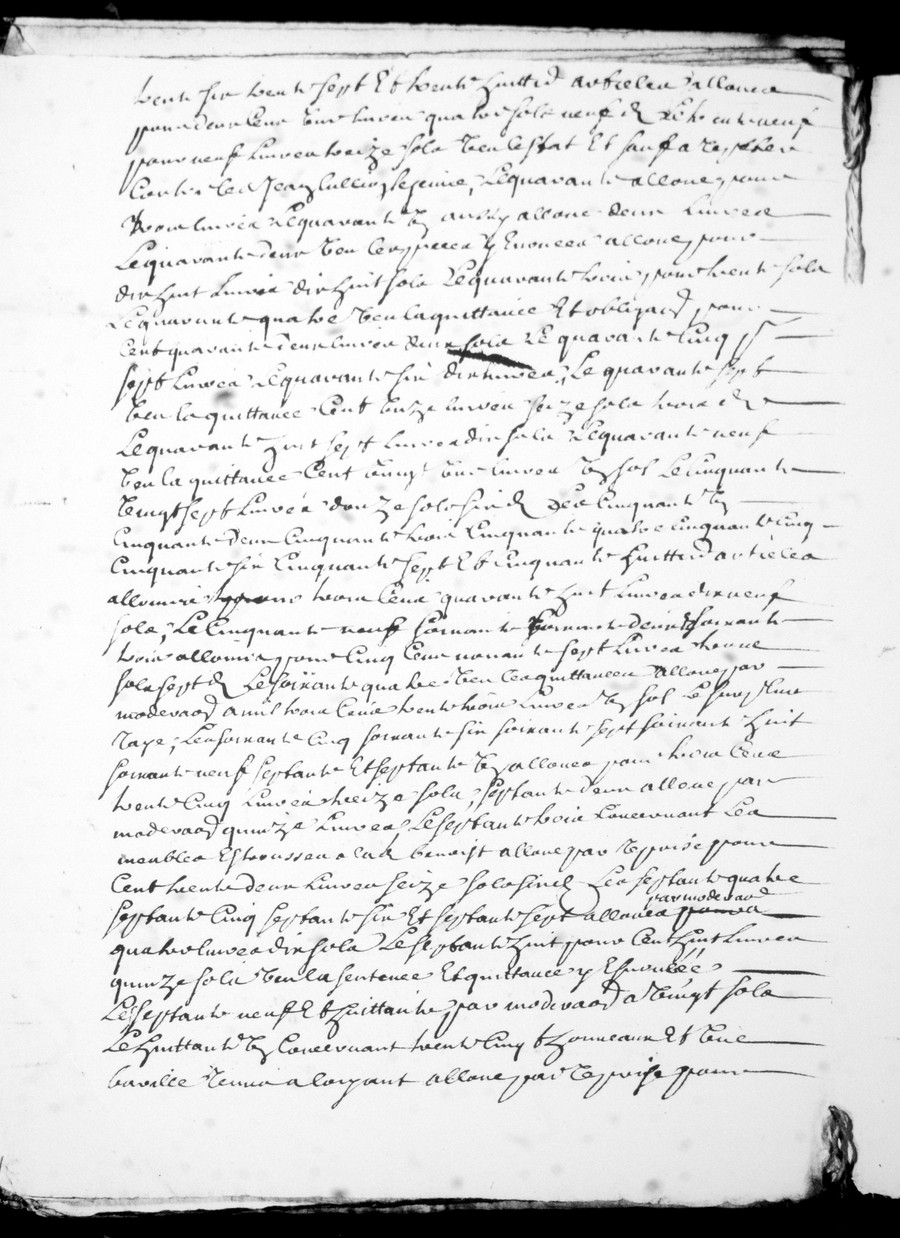 trente six trente sept Et trente huittie articles alloues
pour deux Cent une livres quatre sols neuf d Le trente neuf
pour neuf livres treize sols veu l'estat Et sauf a repeter
Contre les Le quarante alloué pour
trois livres Le quarante un aussy alloué deux livres
Le quarante deux veu les pieces y Enoncees alloué pour
dix huit livres dix huit sols Le quarante trois pour trente sols
Le quarante quatre veu la quittance Et obligaōn pour
Cent quarante deux livres deux sols Le quarante Cinq pr
sept livres Le quarante six dix livres, Le quarante sept
veu la quittance Cent unze livres seize sols trois d
Le quarante huit sept livres dix sols Le quarante neuf
veu la quittance Cent vingt une livres un sol Le Cinquante
vingt sept livres douze sols six d Les Cinquante un
Cinquante deux Cinquante trois Cinquante quatre Cinquante Cinq
Cinquante six Cinquante sept Et Cinquante huittie articles
allouéz pour trois Cens quarante huit livres dix neuf
sols, Le Cinquante neuf soixante soixante deux soixante
trois allouéz pour Cinq Cens nonante sept livres
sols sept d Le soixante quatre veu les quittances alloué par
moderaōn a mil trois Cens trente trois livres un sol Le surplus
rayé, Les soixante Cinq soixante six soixante sept soixante huit
soixante neuf septante Et septante un alloues pour trois Cens
trente Cinq livres treize sols, septante deux alloué par
moderaōn quinze livres Le septante trois Concernant Les
meubles Et trousseau benoist alloué par reprise pour
Cent trente deux livres seize sols six d Les septante quatre
septante Cinq septante six Et septante sept alloues par moderaōn
quatre livres dix sols Le septante huit pour Cent huit livres
quinze sols veu la sentence Et quittance y Enoncées
Le septante neuf Et huittante par moderaōn a vingt sols
Le huittante un Concernant trente Cinq thonneaux Et une
alloué par reprise pour